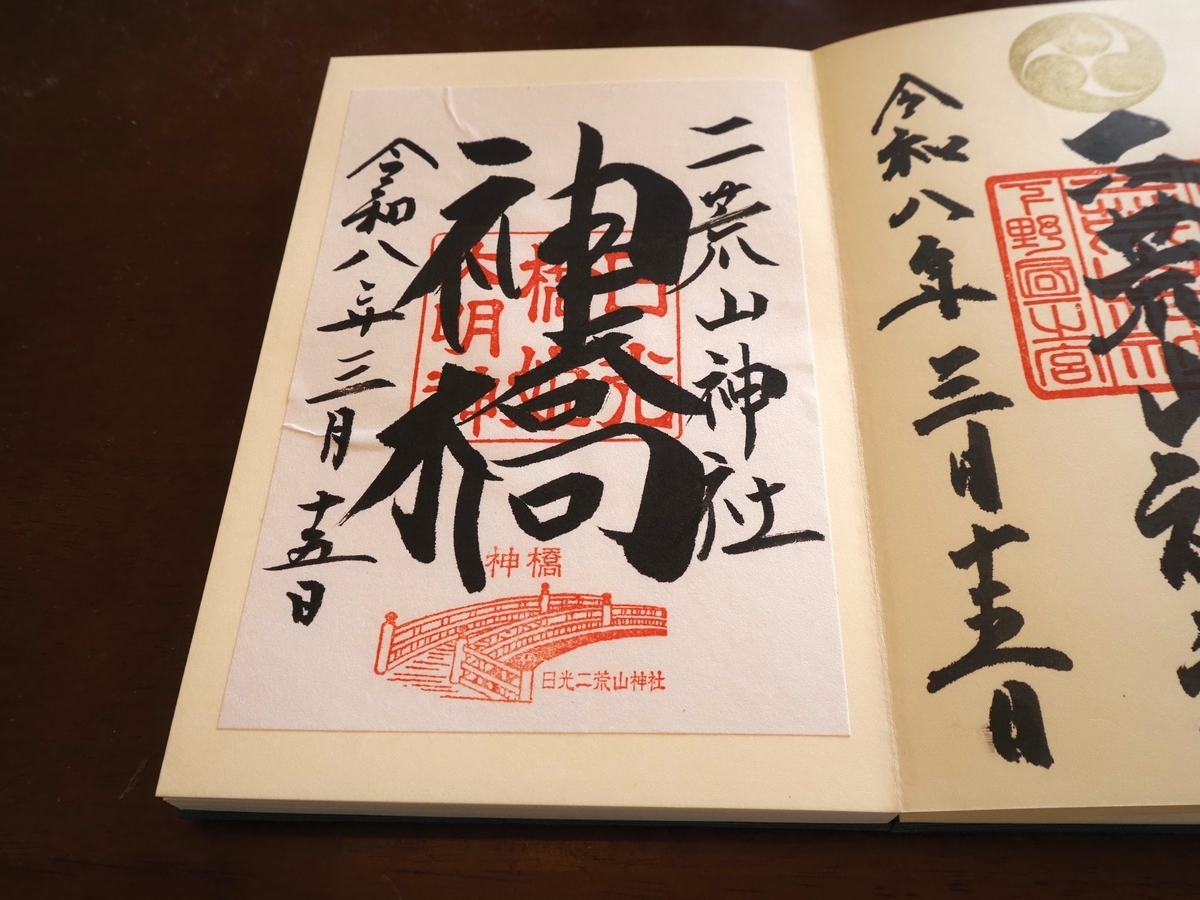 二荒山神
下野國一之宮
令和八年三月十五日
二荒山神社
神橋
日光
橋姫
大明神
令和八年三月十五日
神橋
日光二荒山神社